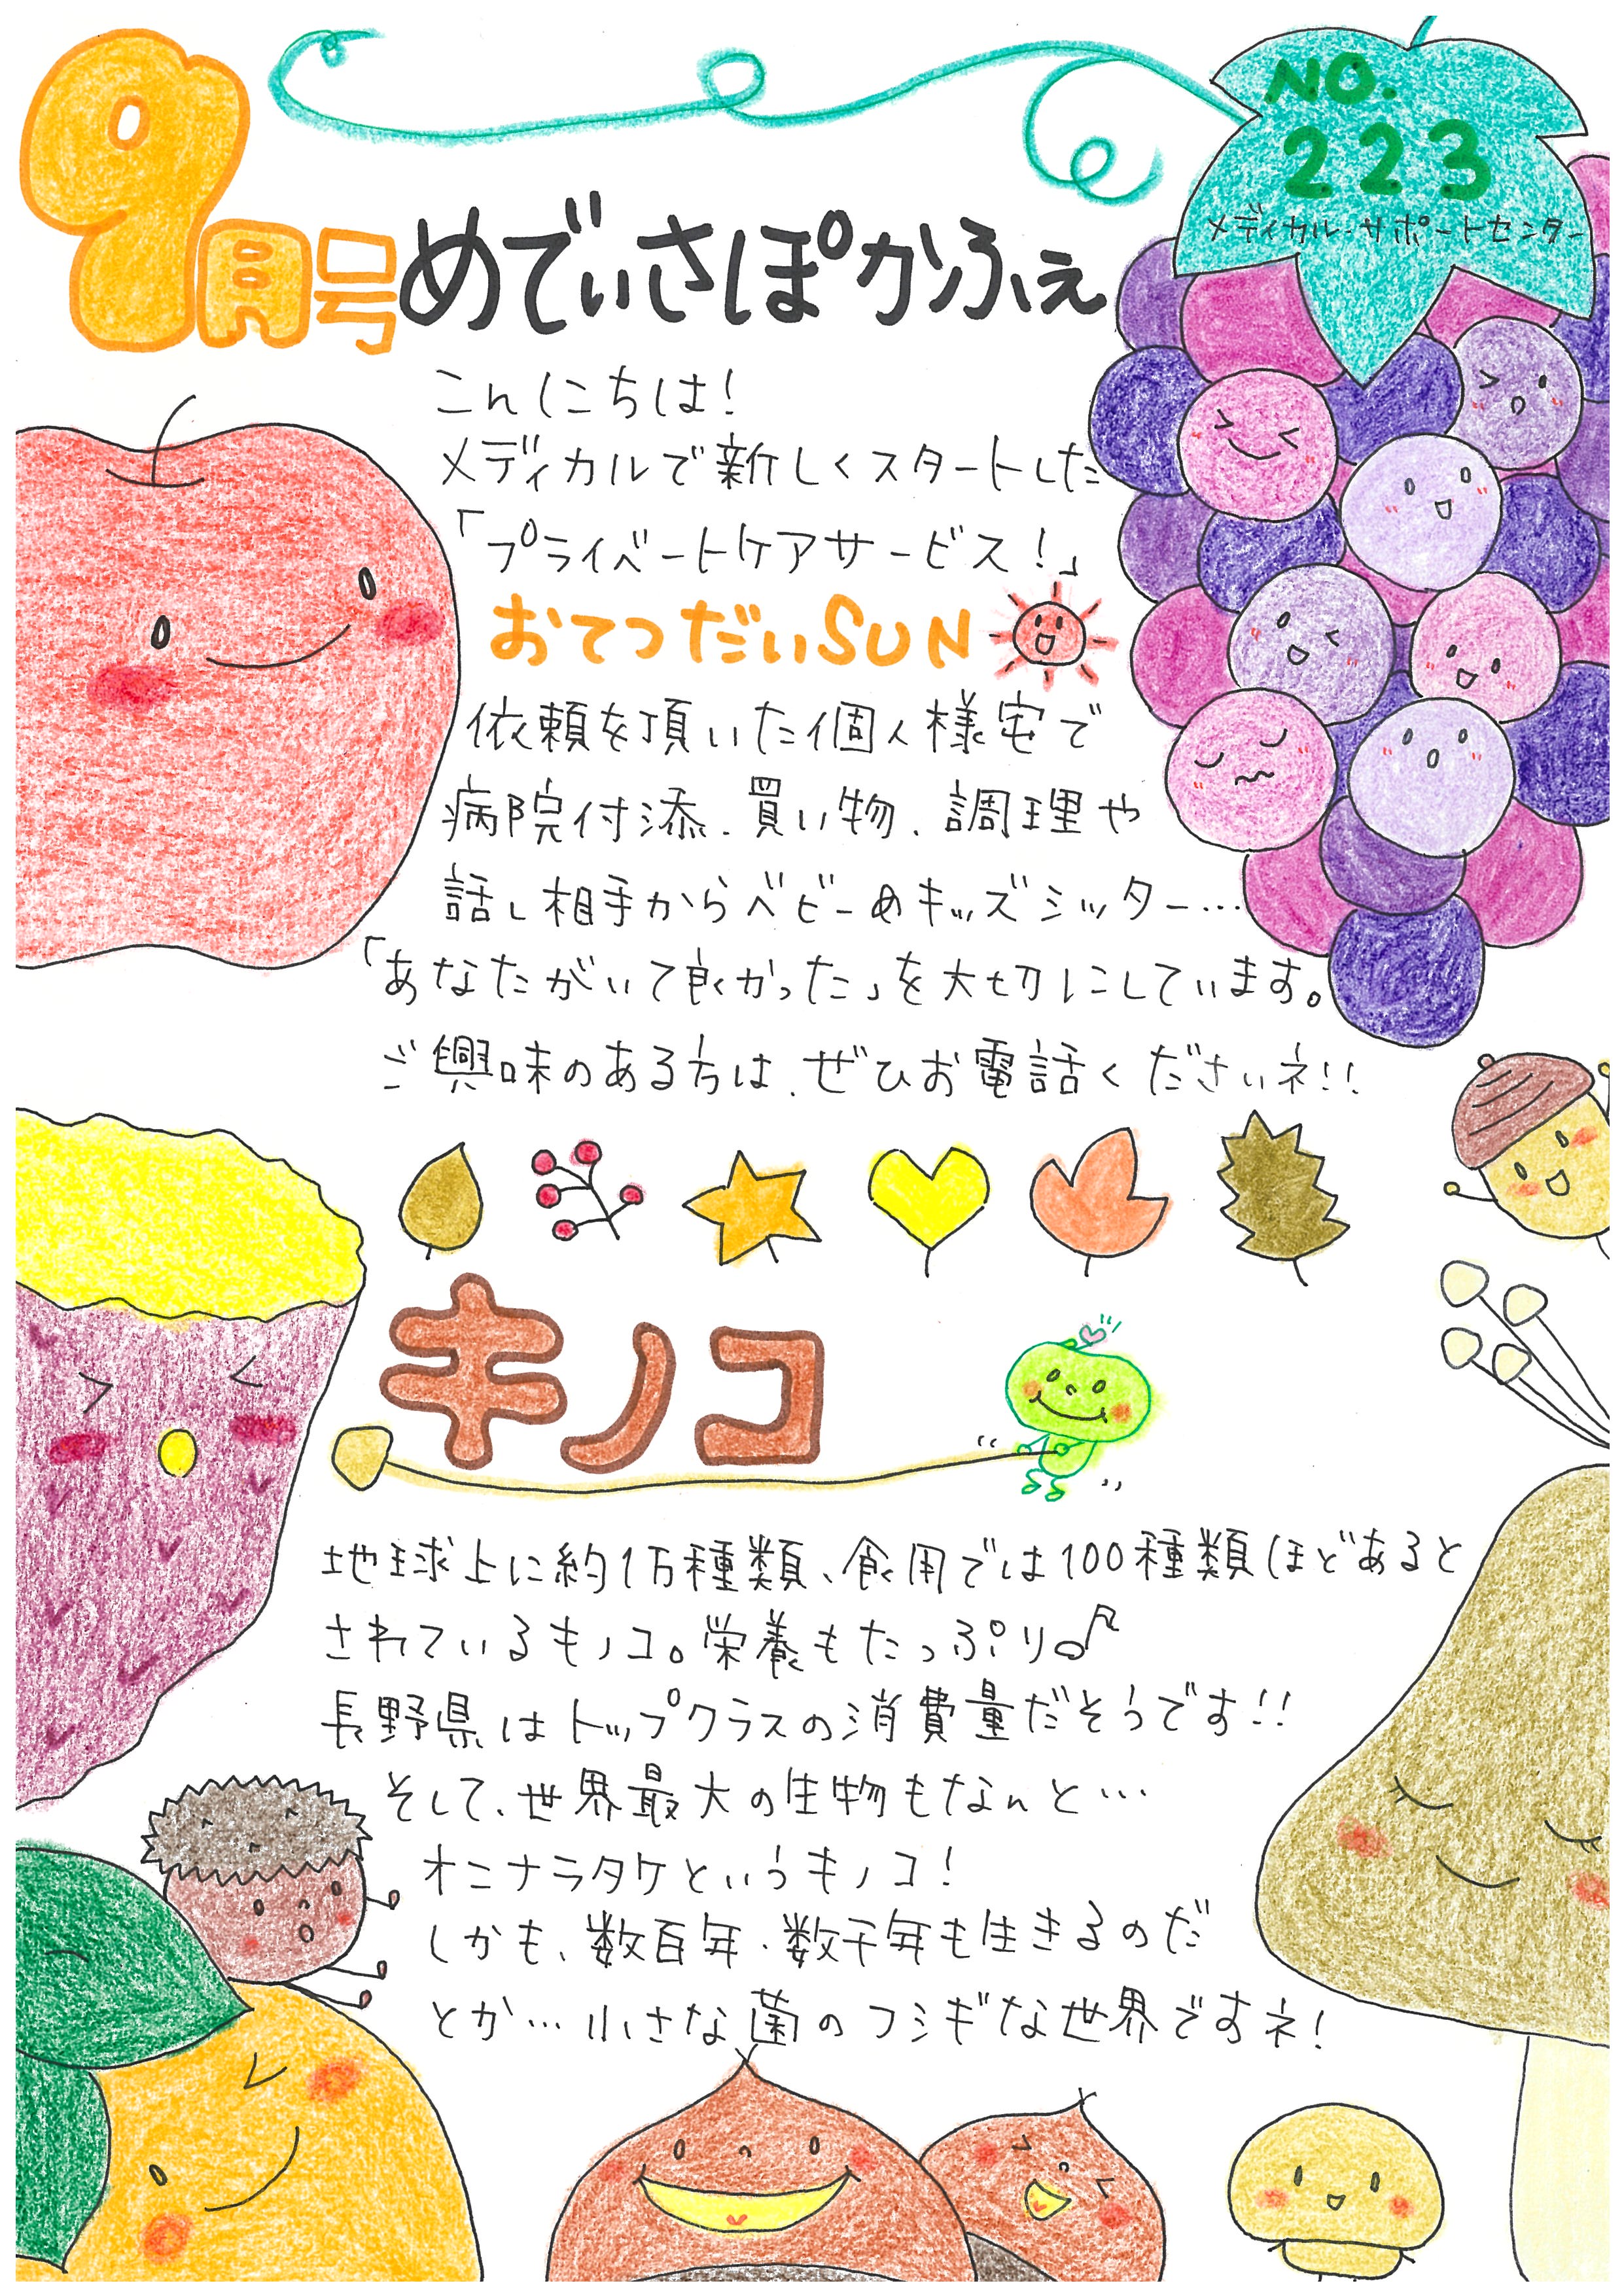 9月号 めでぃさぽかふぇ
NO.
223
メディカル・サポートセンター
こんにちは!
メディカルで新しくスタートした
「プライベートケアサービス!」
おてつだいSUN
依頼を頂いた個人様宅で
病院付添、買い物、調理や
話し相手からベビーめキッズシッター…
「あなたがいて良かった」を大切にしています。
ご興味のある方は、ぜひお電話くださいネ!!
キノコ
地球上に約1万種類、食用では100種類ほどあると
されているキノコ。栄養もたっぷり♪
長野県はトップクラスの消費量だそうです!!
そして、世界最大の生物もなんと…
オニナラタケというキノコ!
しかも、数百年・数千年も生きるのだ
とか…小さな菌のフシギな世界ですネ!